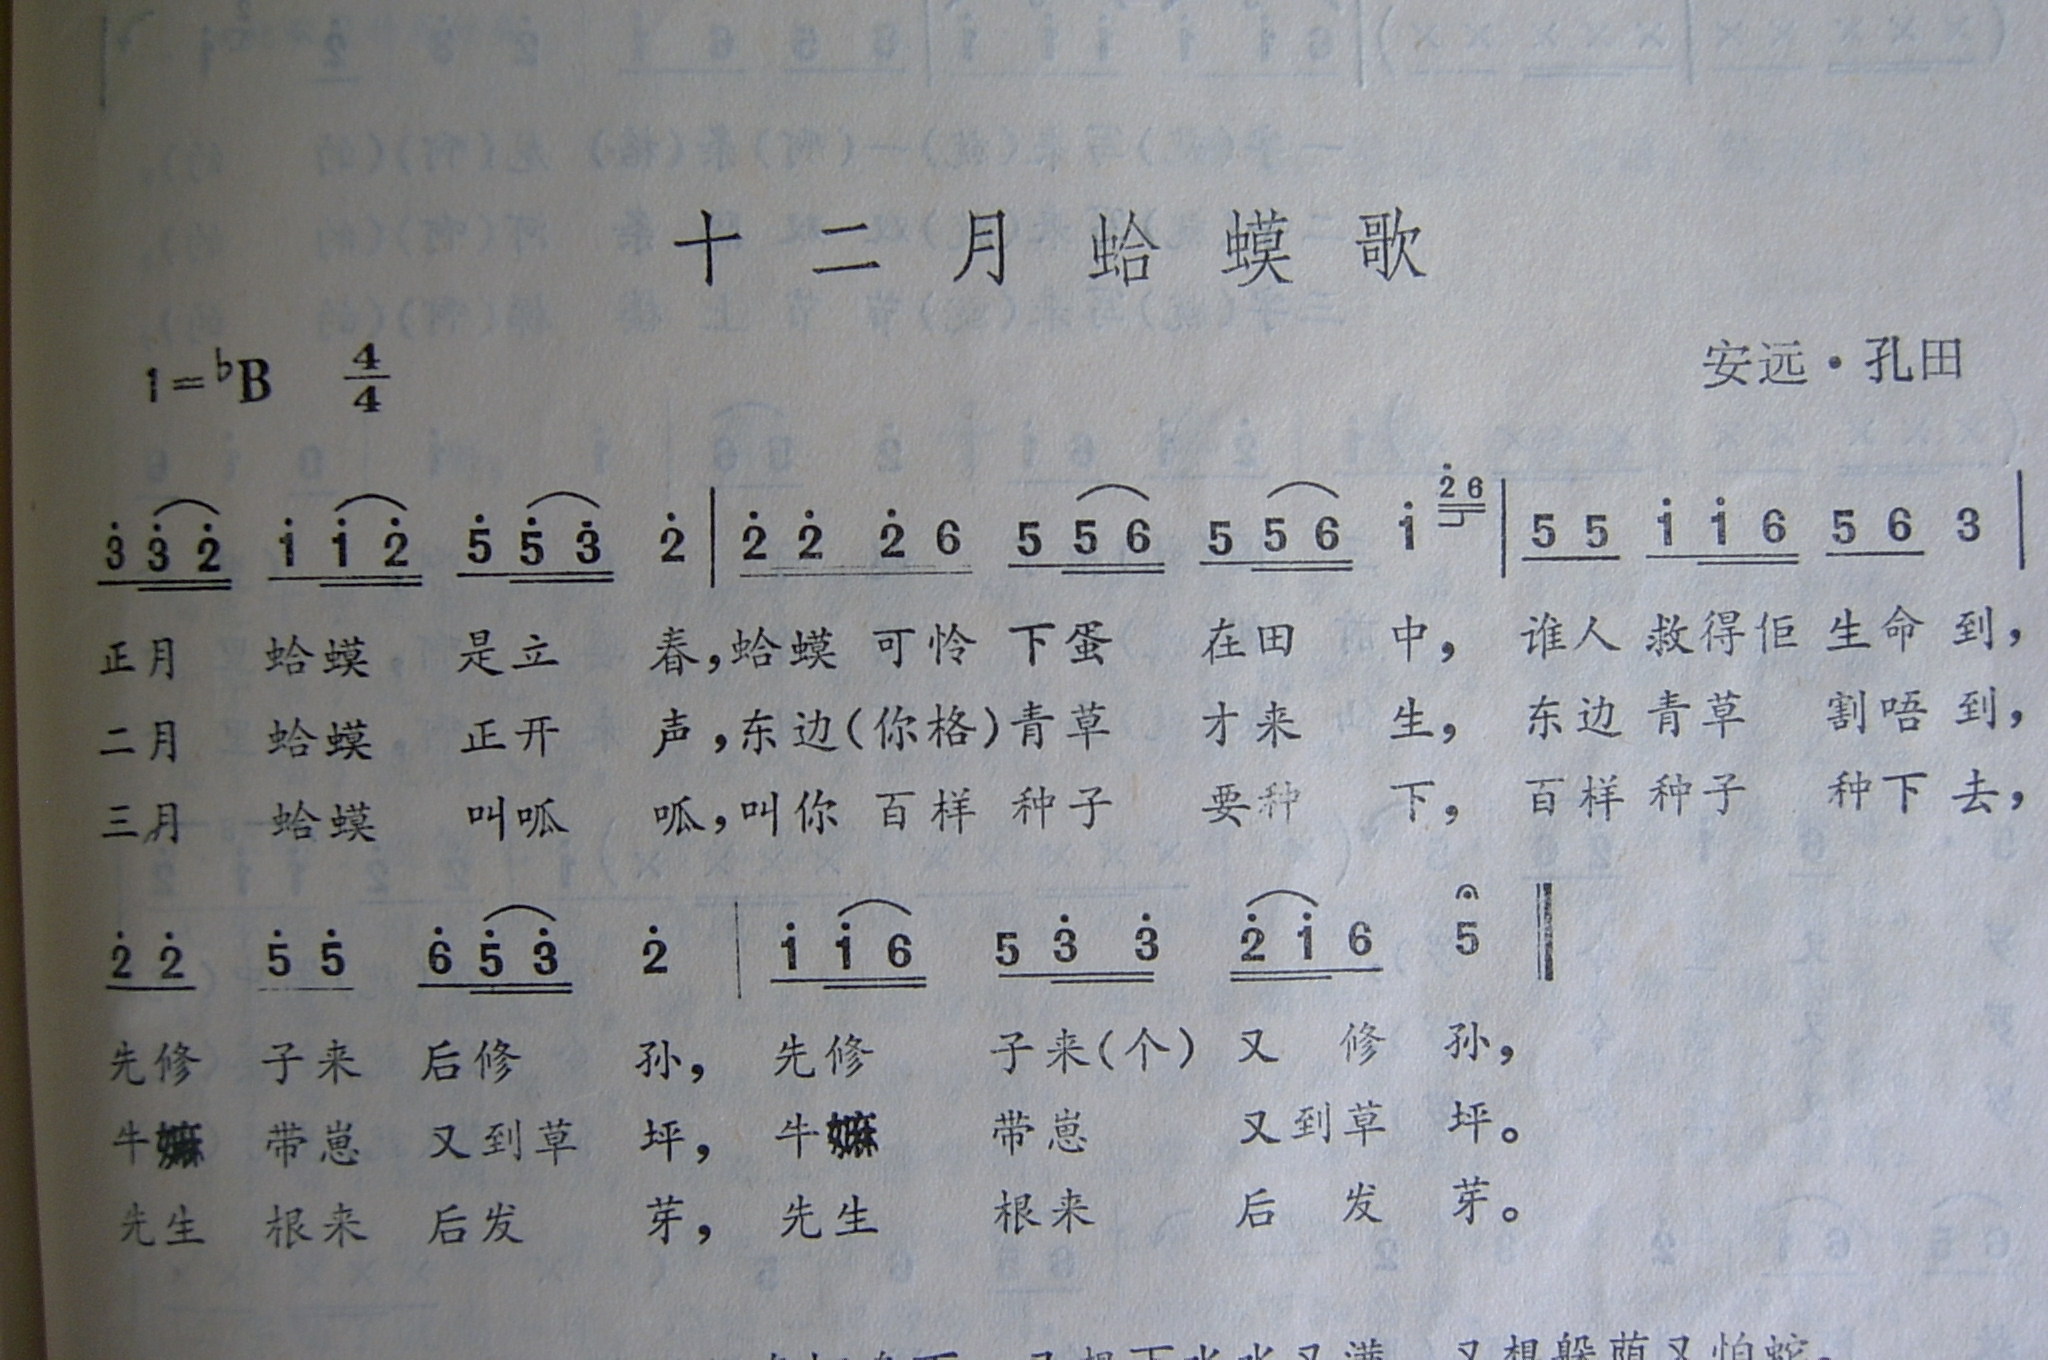 十二月蛤蟆歌
1=♭B 4/4 安远·孔田
3̇ 3̇ 2̇ 1̇ 1̇ 2̇ 5̇ 5̇ 3̇ 2̇ | 2̇ 2̇ 2̇ 6 5 5 6 5 5 6 1̇ 2̇ 6 | 5 5 1̇ 1̇ 6 5 6 3 |
正月 蛤蟆 是立 春,蛤蟆 可怜 下蛋 在田 中, 谁人 救得佢 生命 到,
二月 蛤蟆 正开 声,东边(你格)青草 才来 生, 东边 青草 割唔 到,
三月 蛤蟆 叫呱 呱,叫你 百样 种子 要种 下, 百样 种子 种下 去,
2̇ 2̇ 5̇ 5̇ 6̇ 5̇ 3̇ 2̇ | 1̇ 1̇ 6 5 3̇ 3̇ 2̇ 1̇ 6 5
先修 子来 后修 孙, 先修 子来(个) 又 修 孙,
牛嫲 带崽 又到草 坪, 牛嫲 带崽 又到草 坪。
先生 根来 后发 芽, 先生 根来 后 发 芽。
又想躲荫又怕蛇。